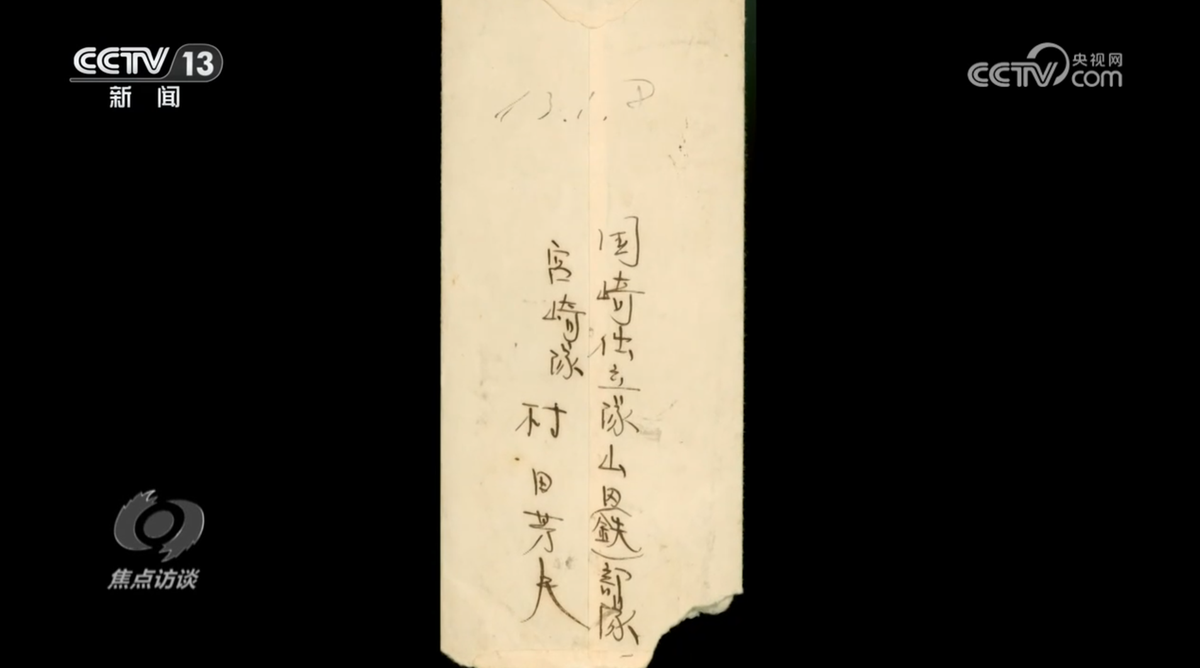 CCTV 13
新闻
央视网
CCTV.com
13.1.8
国崎独立隊山田(鉄)部隊
宮崎隊 村田芳夫
焦点访谈